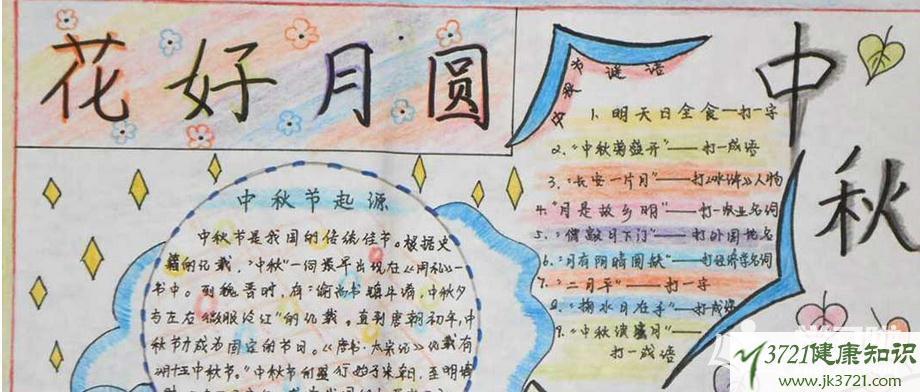 花好月圆
中秋
中秋节谜语
1、明天日全食一打一字
2、“中秋菊盛开”——打一成语
3、“长安一片月”——打《水浒》人物
4、“月是故乡明”——打一农业名词
5、“僧敲月下门”——打外国地名
6、“月有阴晴圆缺”——打经济学名词
7、“二月平”——打一字
8、“掬水月在手”——打成语
9、“中秋演盛月”——
打一成语
中秋节起源
中秋节是我国的传统佳节。根据史
籍的记载，“中秋”一词最早出现在《周礼》一
书中。到魏晋时，有“谕尚书镇牛渚，中秋夕
与左右微服泛江”的记载。直到唐朝初年，中
秋节才成为固定的节日。《唐书·太宗记》记载有
“八月十五中秋节”。中秋节的盛行始于宋朝，至明清
3721健康知识
www.jk3721.com